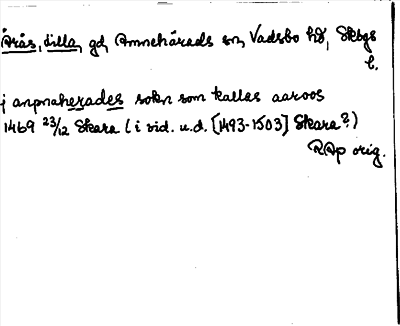 Årås, Lilla, gd, Amnehärads sn, Vadsbo hd, Skbgs
l.
j anpnaherades sokn som kallas aaroos
1469 23/12 Skara (i vid. u.d. [1493-1503] Skara?)
RAp orig.